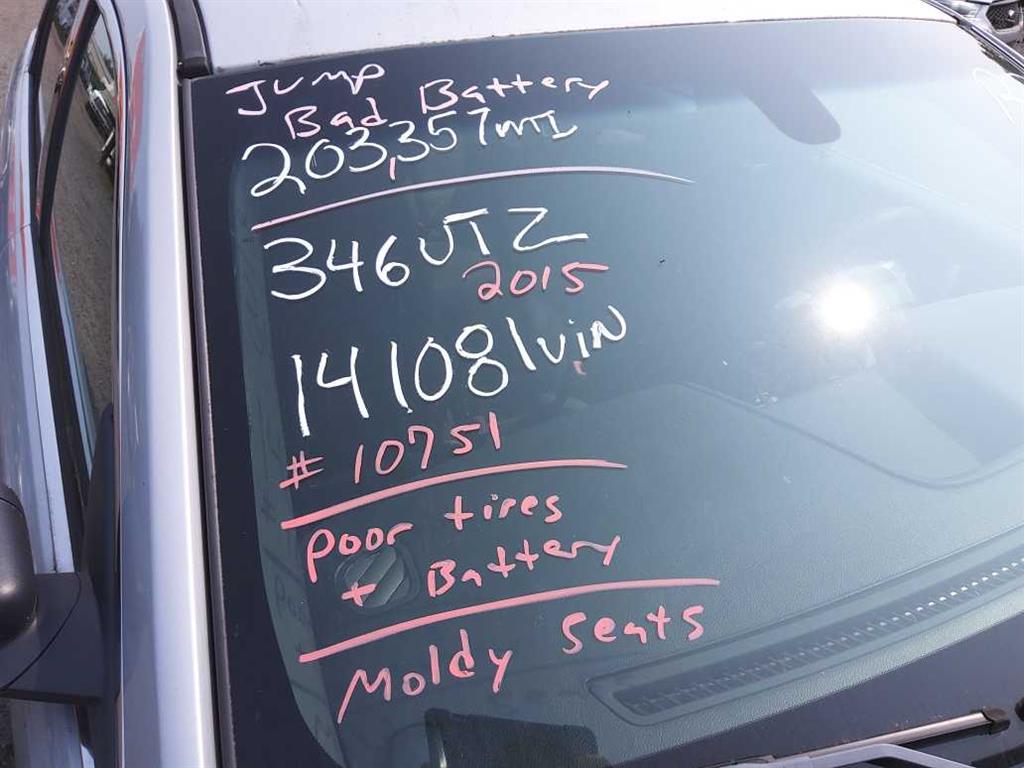 JUMP
Bad Battery
203,357 MI
346 UTZ
2015
141081 VIN
# 10751
Poor tires
+ Battery
Moldy Seats